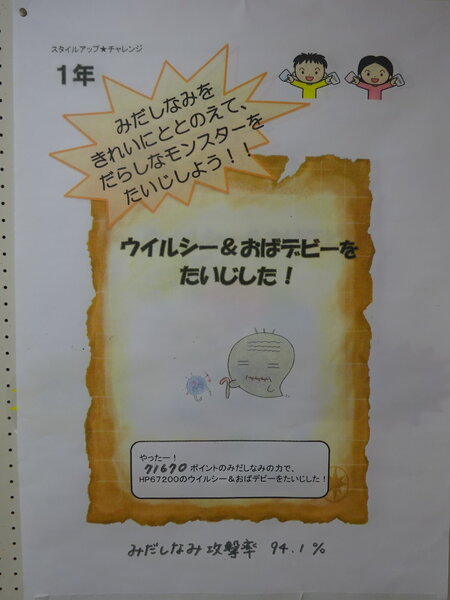 スタイルアップ★チャレンジ
1年
みだしなみを
きれいにととのえて、
だらしなモンスターを
たいじしよう！！
ウイルシー＆おばデビーを
たいじした！
やったー！
71670 ポイントのみだしなみの力で、
HP67200のウイルシー＆おばデビーをたいじした！
みだしなみ攻撃率 94.1％